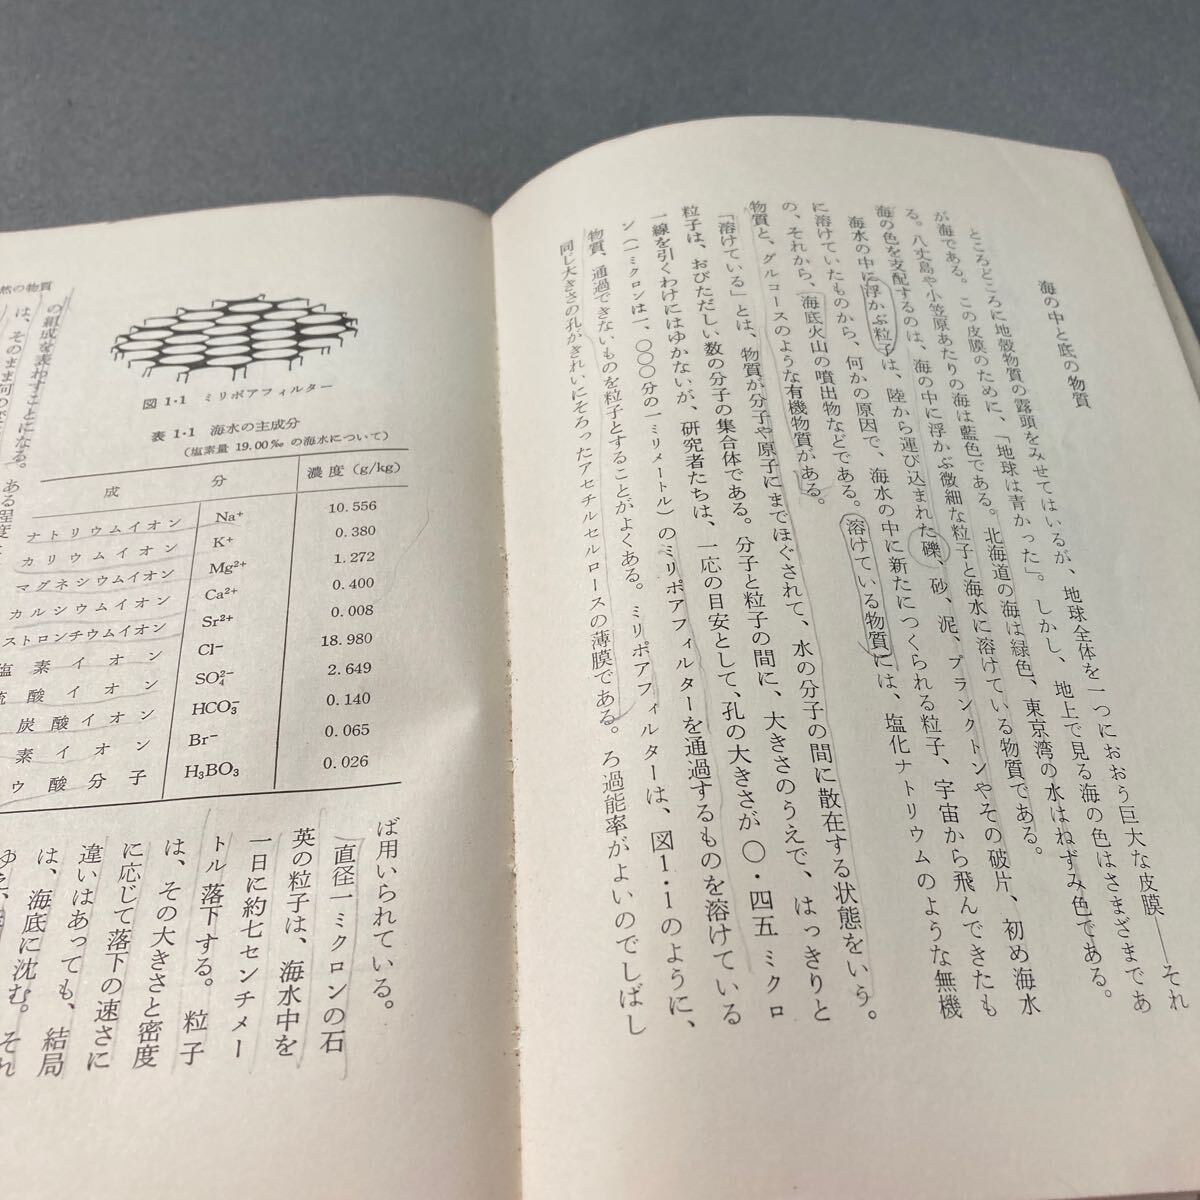 海の中と底の物質
ところどころに地殻物質の露頭をみせてはいるが、地球全体を一つにおおう巨大な皮膜――それ
が海である。この皮膜のために、「地球は青かった」。しかし、地上で見る海の色はさまざまであ
る。八丈島や小笠原あたりの海は藍色である。北海道の海は緑色、東京湾の水はねずみ色である。
海の色を支配するのは、海の中に浮かぶ微細な粒子と海水に溶けている物質である。
海水の中に浮かぶ粒子は、陸から運び込まれた礫、砂、泥、プランクトンやその破片、初め海水
に溶けていたものから、何かの原因で、海水の中に新たにつくられる粒子、宇宙から飛んできたも
の、それから、海底火山の噴出物などである。溶けている物質には、塩化ナトリウムのような無機
物質と、グルコースのような有機物質がある。
「溶けている」とは、物質が分子や原子にまでほぐされて、水の分子の間に散在する状態をいう。
粒子は、おびただしい数の分子の集合体である。分子と粒子の間に、大きさのうえで、はっきりと
一線を引くわけにはゆかないが、研究者たちは、一応の目安として、孔の大きさが〇・四五ミクロ
ン(一ミクロンは一、〇〇〇分の一ミリメートル)のミリポアフィルターを通過するものを溶けている
物質、通過できないものを粒子とすることがよくある。ミリポアフィルターは、図1・1のように、
同じ大きさの孔がきれいにそろったアセチルセルロースの薄膜である。ろ過能率がよいのでしばし
然の物質
図 1·1 ミリポアフィルター
表 1·1 海水の主成分
(塩素量 19.00‰ の海水について)
成 分 濃度 (g/kg)
ナトリウムイオン Na⁺ 10.556
カリウムイオン K⁺ 0.380
マグネシウムイオン Mg²⁺ 1.272
カルシウムイオン Ca²⁺ 0.400
ストロンチウムイオン Sr²⁺ 0.008
塩素イオン Cl⁻ 18.980
硫酸イオン SO₄²⁻ 2.649
炭酸イオン HCO₃⁻ 0.140
素イオン Br⁻ 0.065
ウ酸分子 H₃BO₃ 0.026
ば用いられている。
直径一ミクロンの石
英の粒子は、海水中を
一日に約七センチメー
トル落下する。粒子
は、その大きさと密度
に応じて落下の速さに
違いはあっても、結局
は、海底に沈む。それ
の組成を表わすことになる。ある程度
は、そのまま何の